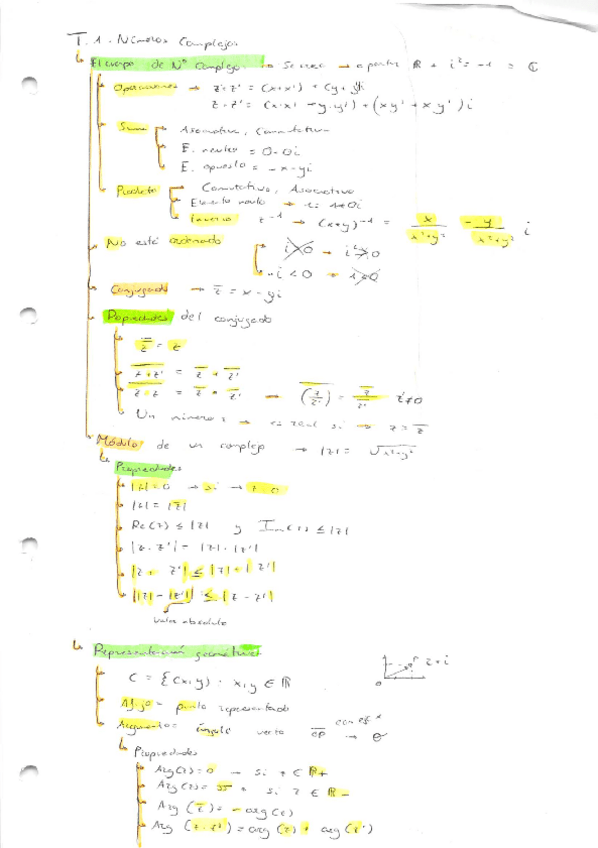 T.1. Números Complejos
El cuerpo de Nº Complejos → se crea → a partir R + i² = -1 = C
Operaciones → z+z' = (x+x') + (y+y')i
z·z' = (x·x' - y·y') + (xy' + xy')i
Suma Asociativa, Conmutativa
E. neutro = 0-0i
E. opuesto = -x-yi
Producto Conmutativo, Asociativo
Elemento neutro → 1+0i
inverso z⁻¹ → (x+y)⁻¹ = x/(x²+y²) - y/(x²+y²) i
No está ordenado i>0 → i²>0
i<0
Conjugado → z̄ = x-yi
Propiedades del conjugado
z̿ = z
Un número z → es real si → z = z̄
Módulo de un complejo → |z| = √(x²+y²)
Propiedades
|z|=0 → si → z=0
|z| = |z̄|
Re(z) ≤ |z| y Im(z) ≤ |z|
|z·z'| = |z|·|z'|
|z+z'| ≤ |z|+|z'|
||z|-|z'|| ≤ |z-z'|
valor absoluto
Representación geométrica
C = {(x,y) · x,y ∈ R
Afijo = punto representado
Argumento = ángulo OP con eje x → θ
Propiedades
Arg(z)=0 → si z ∈ R+
si z ∈ R-
Arg(z̄) = -arg(z)
Arg(z·z') = arg(z) + arg(z')